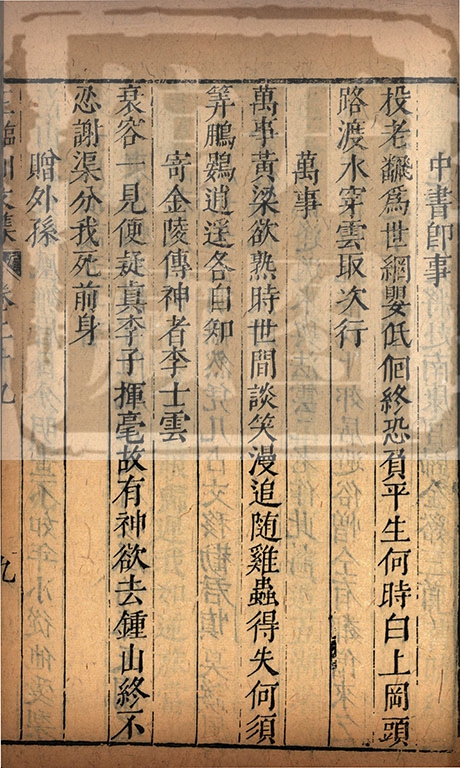 中書即事
投老翻為世網嬰低徊終恐負平生何時白上岡頭
路渡水穿雲取次行
萬事
萬事黃粱欲熟時世間談笑漫追隨雞蟲得失何須
筭鵬鷃逍遥各自知
寄金陵傳神者李士雲
衰容一見便疑真李子揮毫故有神欲去鍾山終不
忍謝渠分我死前身
贈外孫
王臨川文集 卷二十九 九